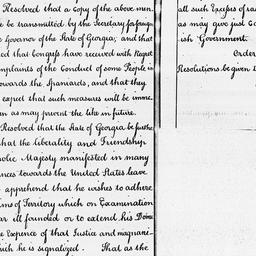 Resolved that a Copy of the above mem
be transmitted by the Secretary for foreign
Governor of the State of Georgia; and that
ed that Congress have received with Regret
mplaints of the Conduct of some People in
towards the Spaniards, and that they
expect that such measures will be imme
en as may prevent the like in future.
Resolved that the State of Georgia be further
that the liberality and Friendship
holic Majesty manifested in many
nces towards the United States leave
apprehend that he wishes to adhere
ims of Territory which on Examination
ar ill founded or to extend his Domi
he Expence of that Justice and magnani
ich he is signalized. That as the
all such Excess of
as may give just C
ish Government.
Order
Resolutions be given t